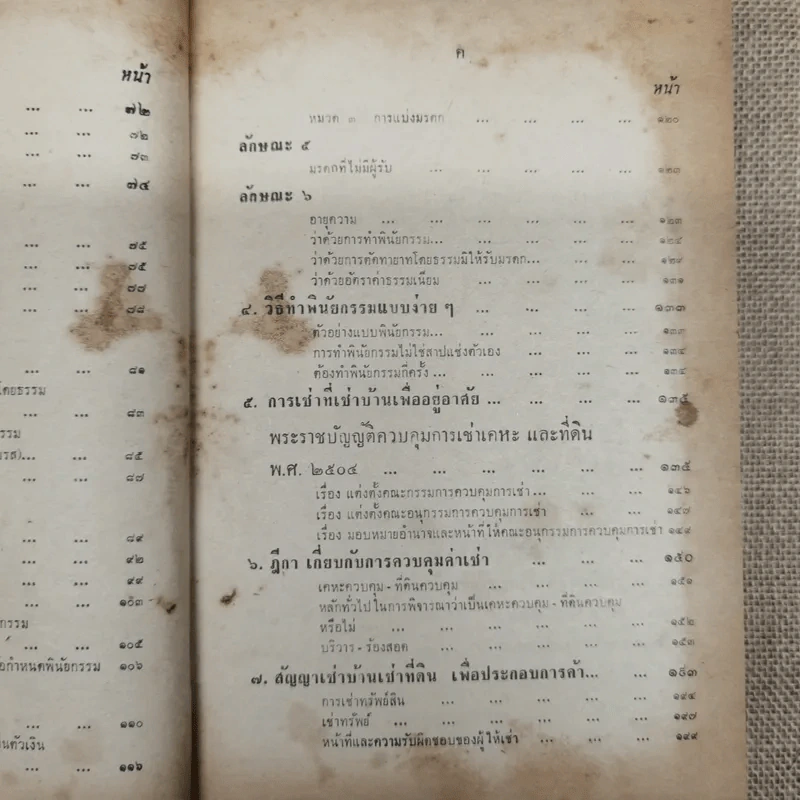 หน้า
... ... ๗๒
... ... ๗๒
... ... ๗๓
... ... ๗๔
... ... ๗๕
... ... ๗๕
... ... ๗๗
... ... ๘๘
... ... ๘๑
โดยธรรม
... ... ๘๓
รรม
รส)... ... ๘๕
... ... ๘๗
... ... ๘๙
... ... ๙๒
... ... ๙๙
... ... ๑๐๓
กรรม
... ๑๐๕
ข้อกำหนดพินัยกรรม ๑๐๖
... ... ๑๑๐
นตัวเงิน
... ... ๑๑๖
ค
หน้า
หมวด ๓ การแบ่งมรดก ... ... ... ... ๑๒๐
ลักษณะ ๕
มรดกที่ไม่มีผู้รับ ... ... ... ... ... ๑๒๓
ลักษณะ ๖
อายุความ ... ... ... ... ... ... ๑๒๓
ว่าด้วยการทำพินัยกรรม... ... ... ... ... ๑๒๔
ว่าด้วยการตัดทายาทโดยธรรมมิให้รับมรดก... ... ... ๑๒๙
ว่าด้วยอัตราค่าธรรมเนียม ... ... ... ... ๑๓๑
๔. วิธีทำพินัยกรรมแบบง่าย ๆ ... ... ... ... ๑๓๓
ตัวอย่างแบบพินัยกรรม... ... ... ... ... ๑๓๓
การทำพินัยกรรมไม่ใช่สาปแช่งตัวเอง ... ... ... ๑๓๔
ต้องทำพินัยกรรมกี่ครั้ง ... ... ... ... ๑๓๔
๕. การเช่าที่เช่าบ้านเพื่ออยู่อาศัย ... ... ... ... ๑๓๕
พระราชบัญญัติควบคุมการเช่าเคหะ และที่ดิน
พ.ศ. ๒๕๐๔ ... ... ... ... ... ... ๑๓๕
เรื่อง แต่งตั้งคณะกรรมการควบคุมการเช่า... ... ... ๑๔๖
เรื่อง แต่งตั้งคณะอนุกรรมการควบคุมการเช่า ... ... ๑๔๗
เรื่อง มอบหมายอำนาจและหน้าที่ให้คณะอนุกรรมการควบคุมการเช่า ๑๔๙
๖. ฎีกา เกี่ยวกับการควบคุมค่าเช่า ... ... ... ๑๕๐
เคหะควบคุม - ที่ดินควบคุม ... ... ... ... ๑๕๑
หลักทั่วไปในการพิจารณาว่าเป็นเคหะควบคุม - ที่ดินควบคุม
หรือไม่ ... ... ... ... ... ... ๑๕๒
บริวาร - ร้องสอด ... ... ... ... ... ๑๕๓
๗. สัญญาเช่าบ้านเช่าที่ดิน เพื่อประกอบการค้า... ... ๑๕๓
การเช่าทรัพย์สิน ... ... ... ... ... ๑๙๔
เช่าทรัพย์ ... ... ... ... ... ... ๑๙๗
หน้าที่และความรับผิดชอบของผู้ให้เช่า ... ... ... ๑๙๙